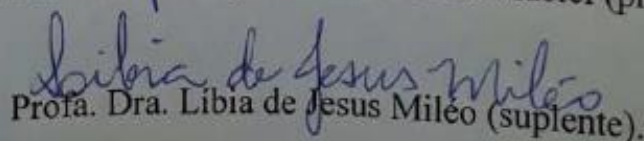 Libia de Jesus Miléo
Profa. Dra. Líbia de Jesus Miléo (suplente).